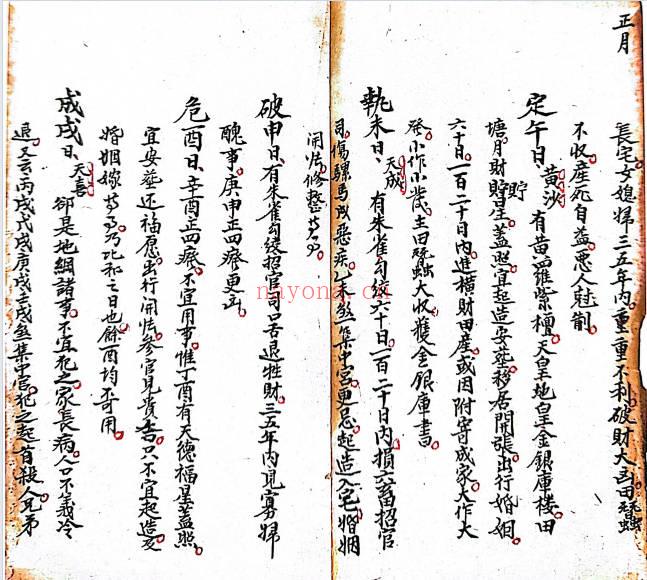 正月
長宅女媳婦三五年内重重不利破財大凶田蚕
不收産死自益悪人尅制
定午日黄沙有黄羅紫檀天皇地皇金銀庫楼田
塘月財貯貯星蓋照宜起造安葬移居開張出行婚姻
六十日一百二十日内進横財田産或因附寄成家大作大
發小作小發主田蚕大收獲金銀庫書
執未日天成有朱雀勾絞六十日一百二十日内損六畜招官
司傷騾馬成悪疾乙未煞集中宫更忌起造入宅婚姻
開張修整
破申日有朱雀勾絞招官司口舌退牲財三五年内見寡婦
醜事庚申正四癈更凶
危酉日辛酉正四癈不宜用事惟丁酉有天徳福星蓋照
宜安葬还福愿出行開張参官見貴吉只不宜起造及
婚姻嫁乃比和之日也餘酉均不可用
成戌日天喜卻是地網諸事不宜犯之家長病人口不義冷
退又云丙戌戊戌庚戌壬戌煞集中宫犯之起官殺人兄弟
nayona.cn